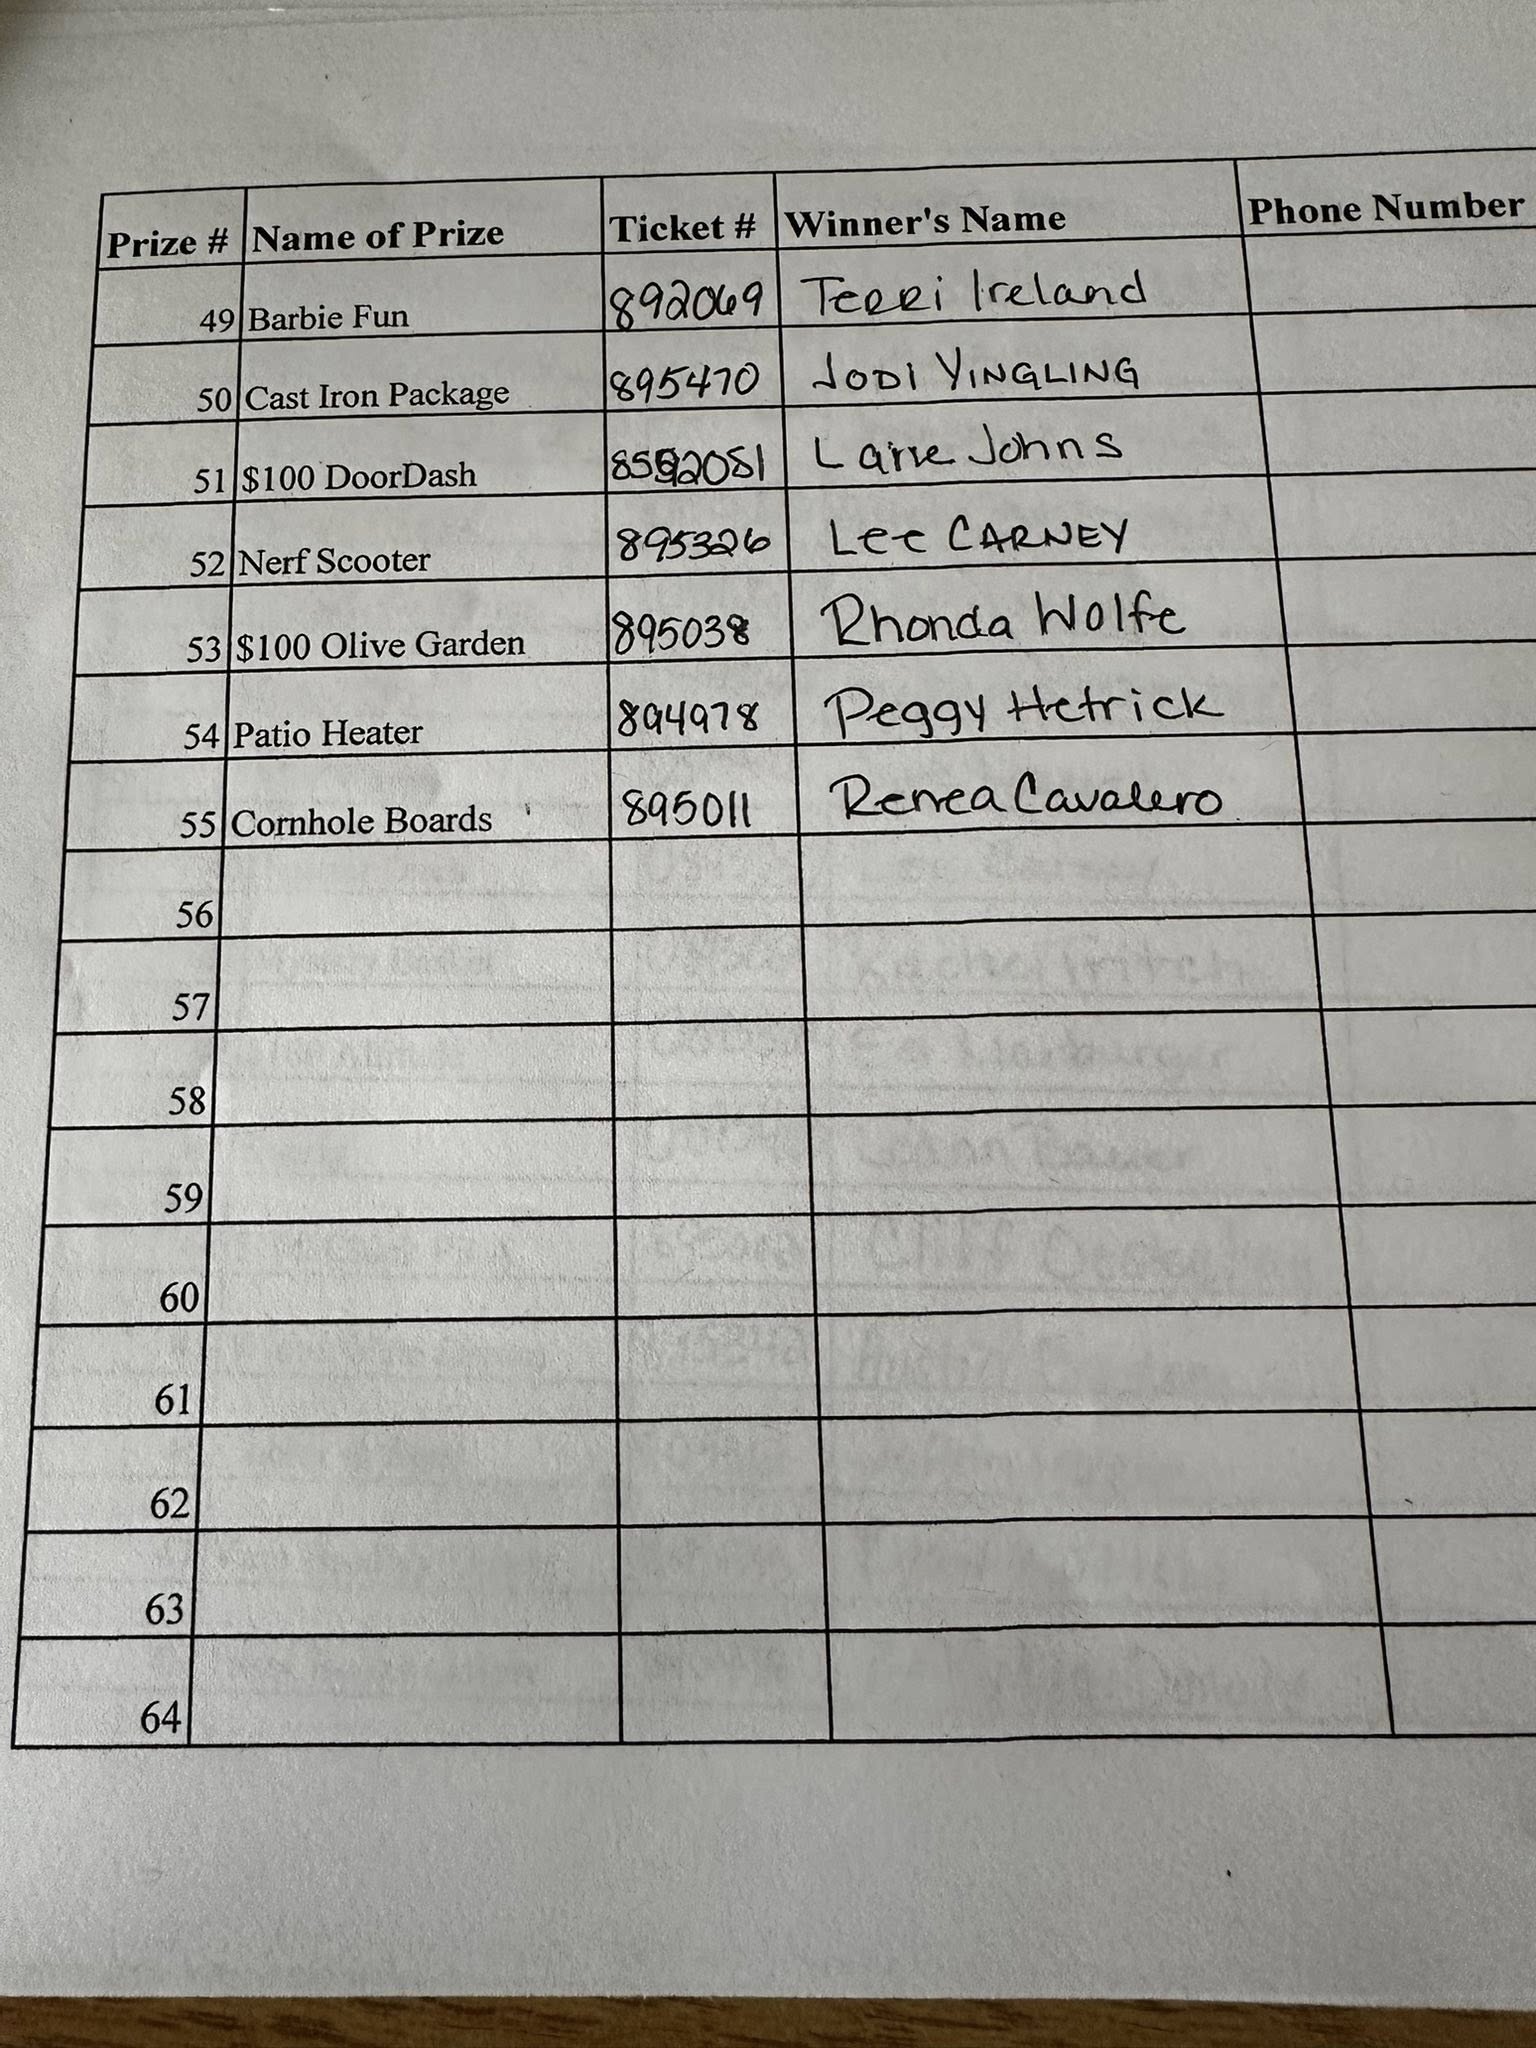 Prize # Name of Prize Ticket # Winner's Name Phone Number
49 Barbie Fun 892069 Terri Ireland
50 Cast Iron Package 895470 JODI YINGLING
51 $100 DoorDash Johns
52 Nerf Scooter 895326 Lee CARNEY
53 $100 Olive Garden 895038 Rhonda Wolfe
54 Patio Heater 894978 Peggy Hetrick
55 Cornhole Boards 895011 Renea Cavalero
56
57
58
59
60
61
62
63
64